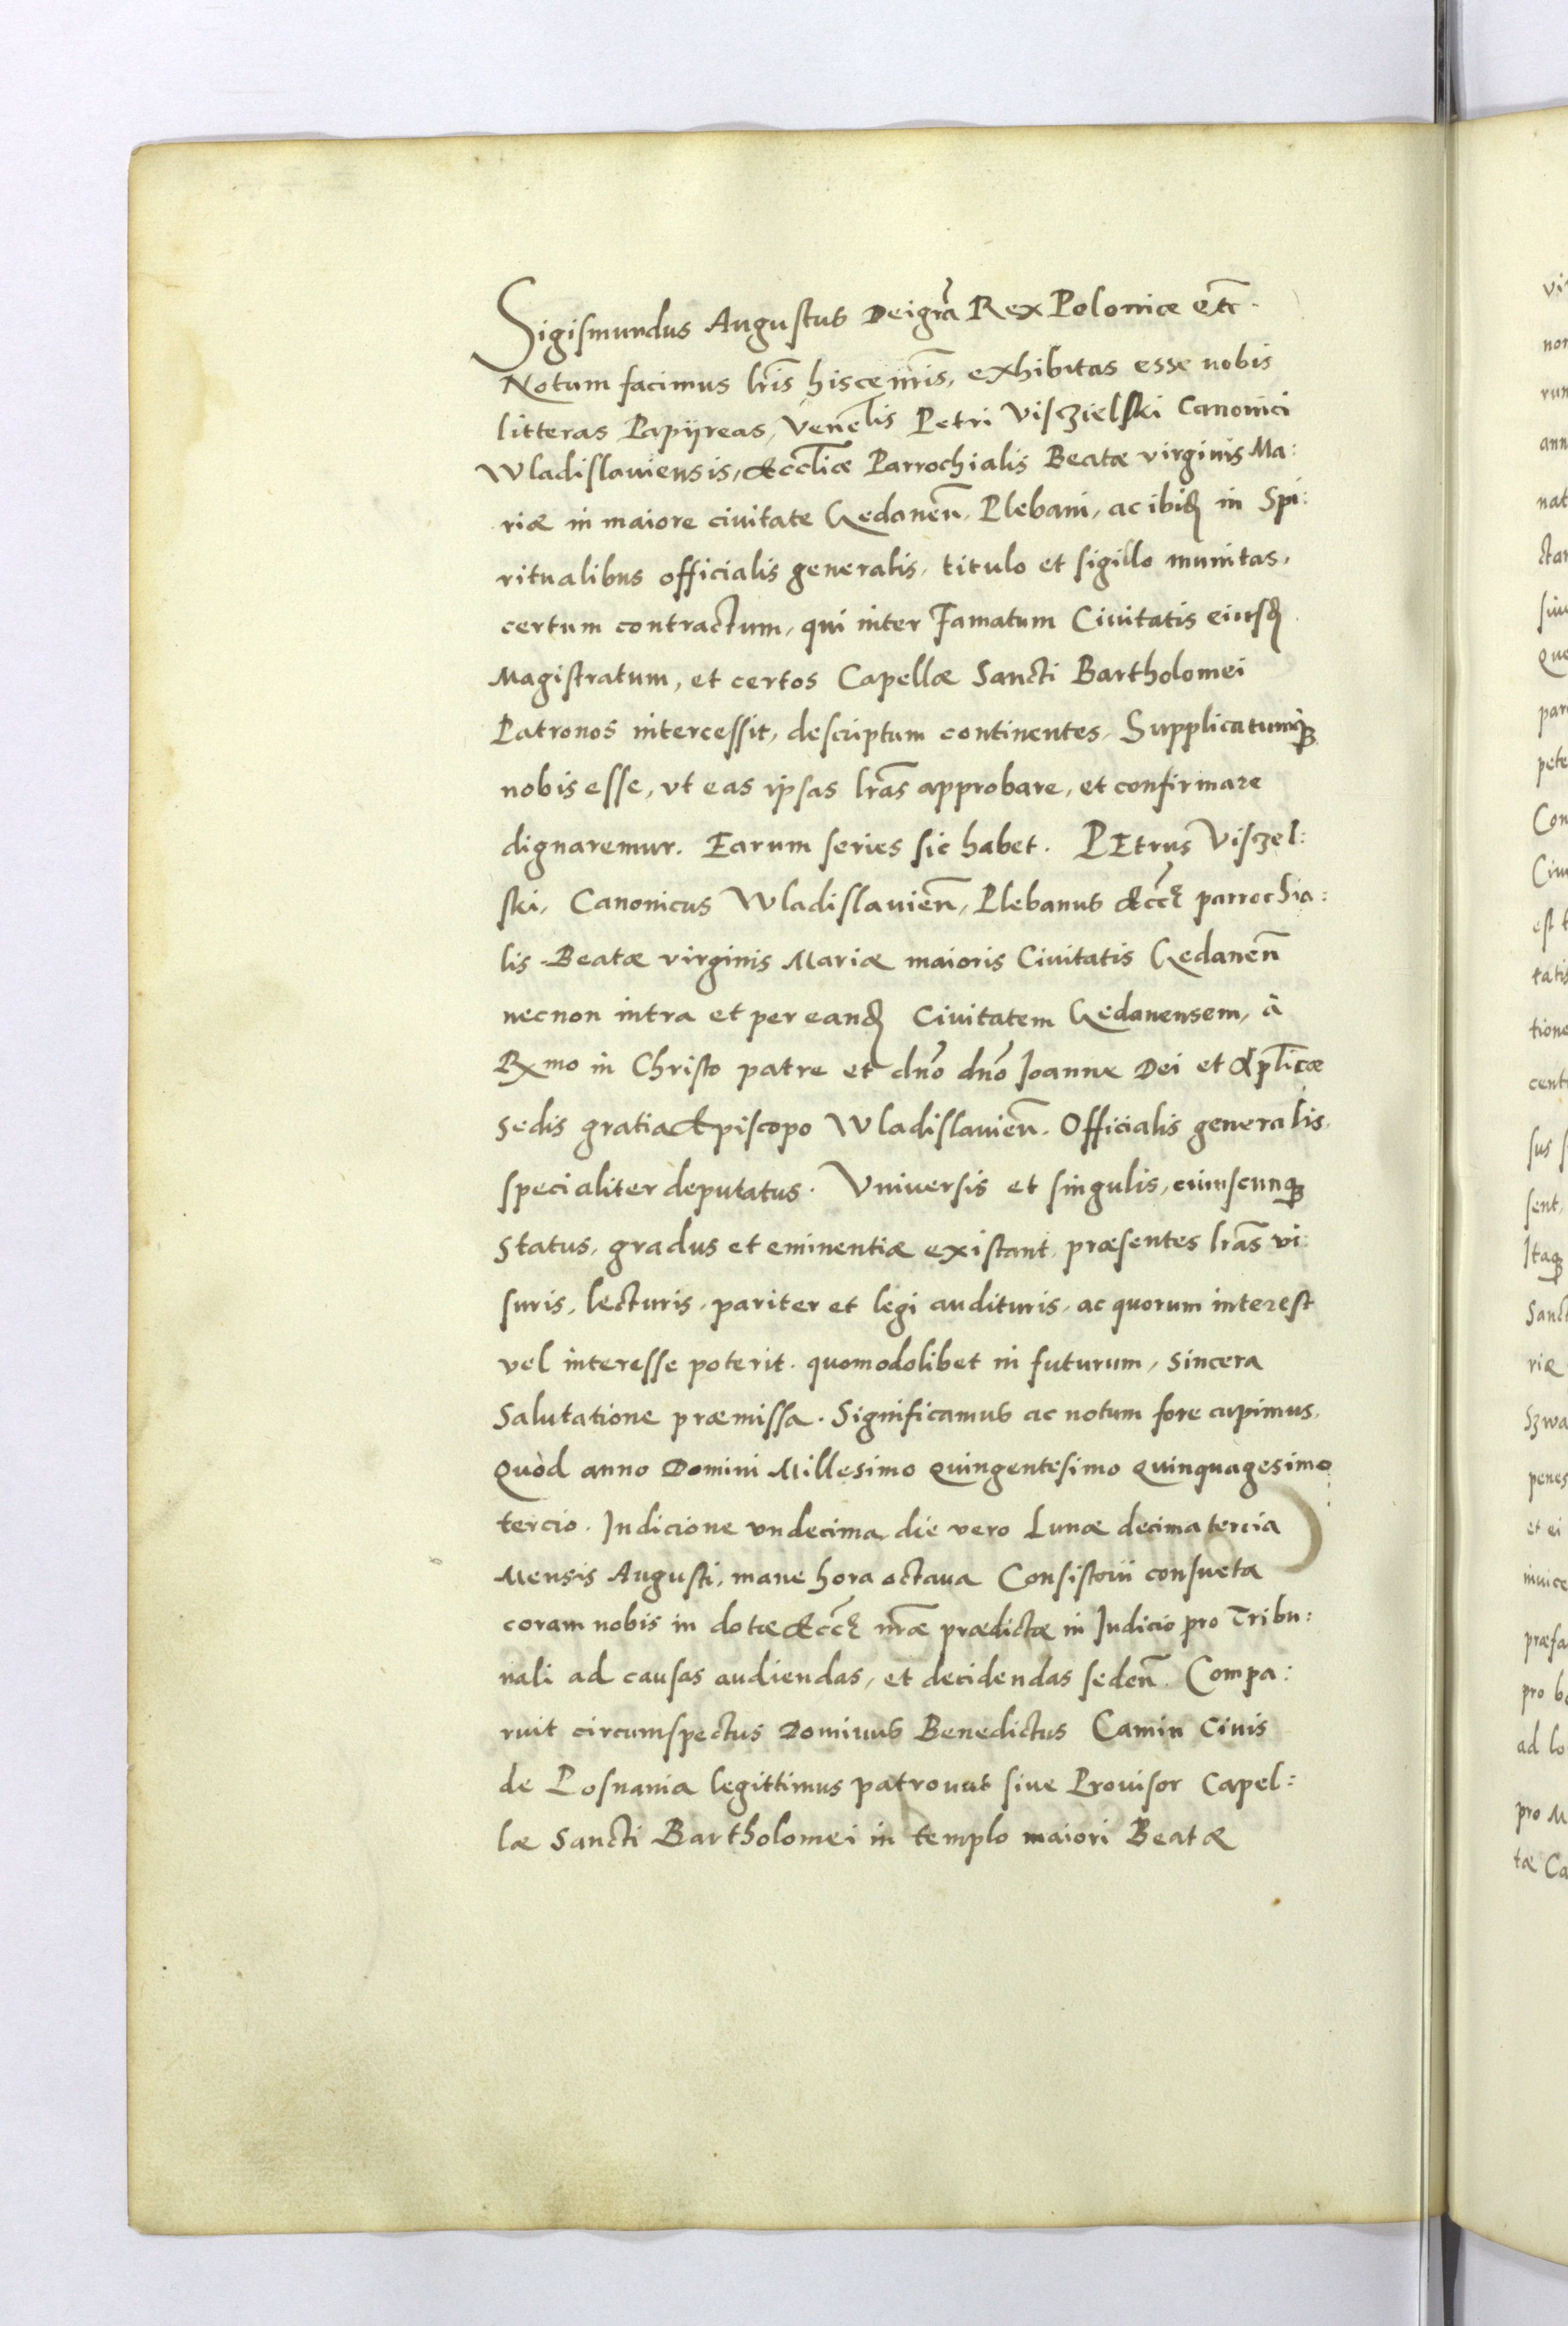 Sigismundus Augustus Dei grã Rex Poloniæ etc̃.
Notum facimus lr̃is hisce nr̃is, exhibitas esse nobis
litteras Papÿreas, Venelis Petri Visczielski Canonici
Wladislaviensis, Eccl̃iæ Parrochialis Beatæ virginis Ma:
riæ in maiore civitate Gedaneñ, Plebani, ac ibid in Spi:
ritualibus officialis generalis, titulo et sigillo munitas,
certum contractum, qui inter Famatum Civitatis eiusd
Magistratum, et certos Capellæ Sancti Bartholomei
Patronos intercessit, descriptum continentes. Supplicatumq;
nobis esse, vt eas ipsas lr̃as approbare, et confirmare
dignaremur. Earum series sic habet. PEtrus Visczel:
ski, Canonicus Wladislavieñ, Plebanus Ecc̃l parrochia:
lis Beatæ virginis Mariæ maioris Civitatis Gedaneñ
necnon intra et per eand Civitatem Gedanensem, à
Rmo in Christo patre et dño dño Joanne Dei et Apl̃icæ
sedis gratia Episcopo Wladislavieñ. Officialis generalis
specialiter deputatus. Vniversis et singulis, cuiuscunq;
status, gradus et eminentiæ existant, præsentes lr̃as vi
suris, lecturis, pariter et legi audituris, ac quorum interest
vel interesse poterit quomodolibet in futurum, sincera
Salutatione præmissa. Significamus ac notum fore cupimus,
Quòd anno Domini Millesimo Quingentesimo Quinquagesimo
tercio. Indicione vndecima die vero Lunæ decima tercia
Mensis Augusti, mane hora octava Consistorii consueta
coram nobis in dote Ecc̃l nr̃æ prædictæ in Judicio pro Tribu:
nali ad causas audiendas, et decidendas sedeñ. Compa:
ruit circumspectus Dominus Benedictus Camin Civis
de Posnania legittimus patronus sive Provisor Capel:
læ Sancti Bartholomei in templo maiori Beatæ